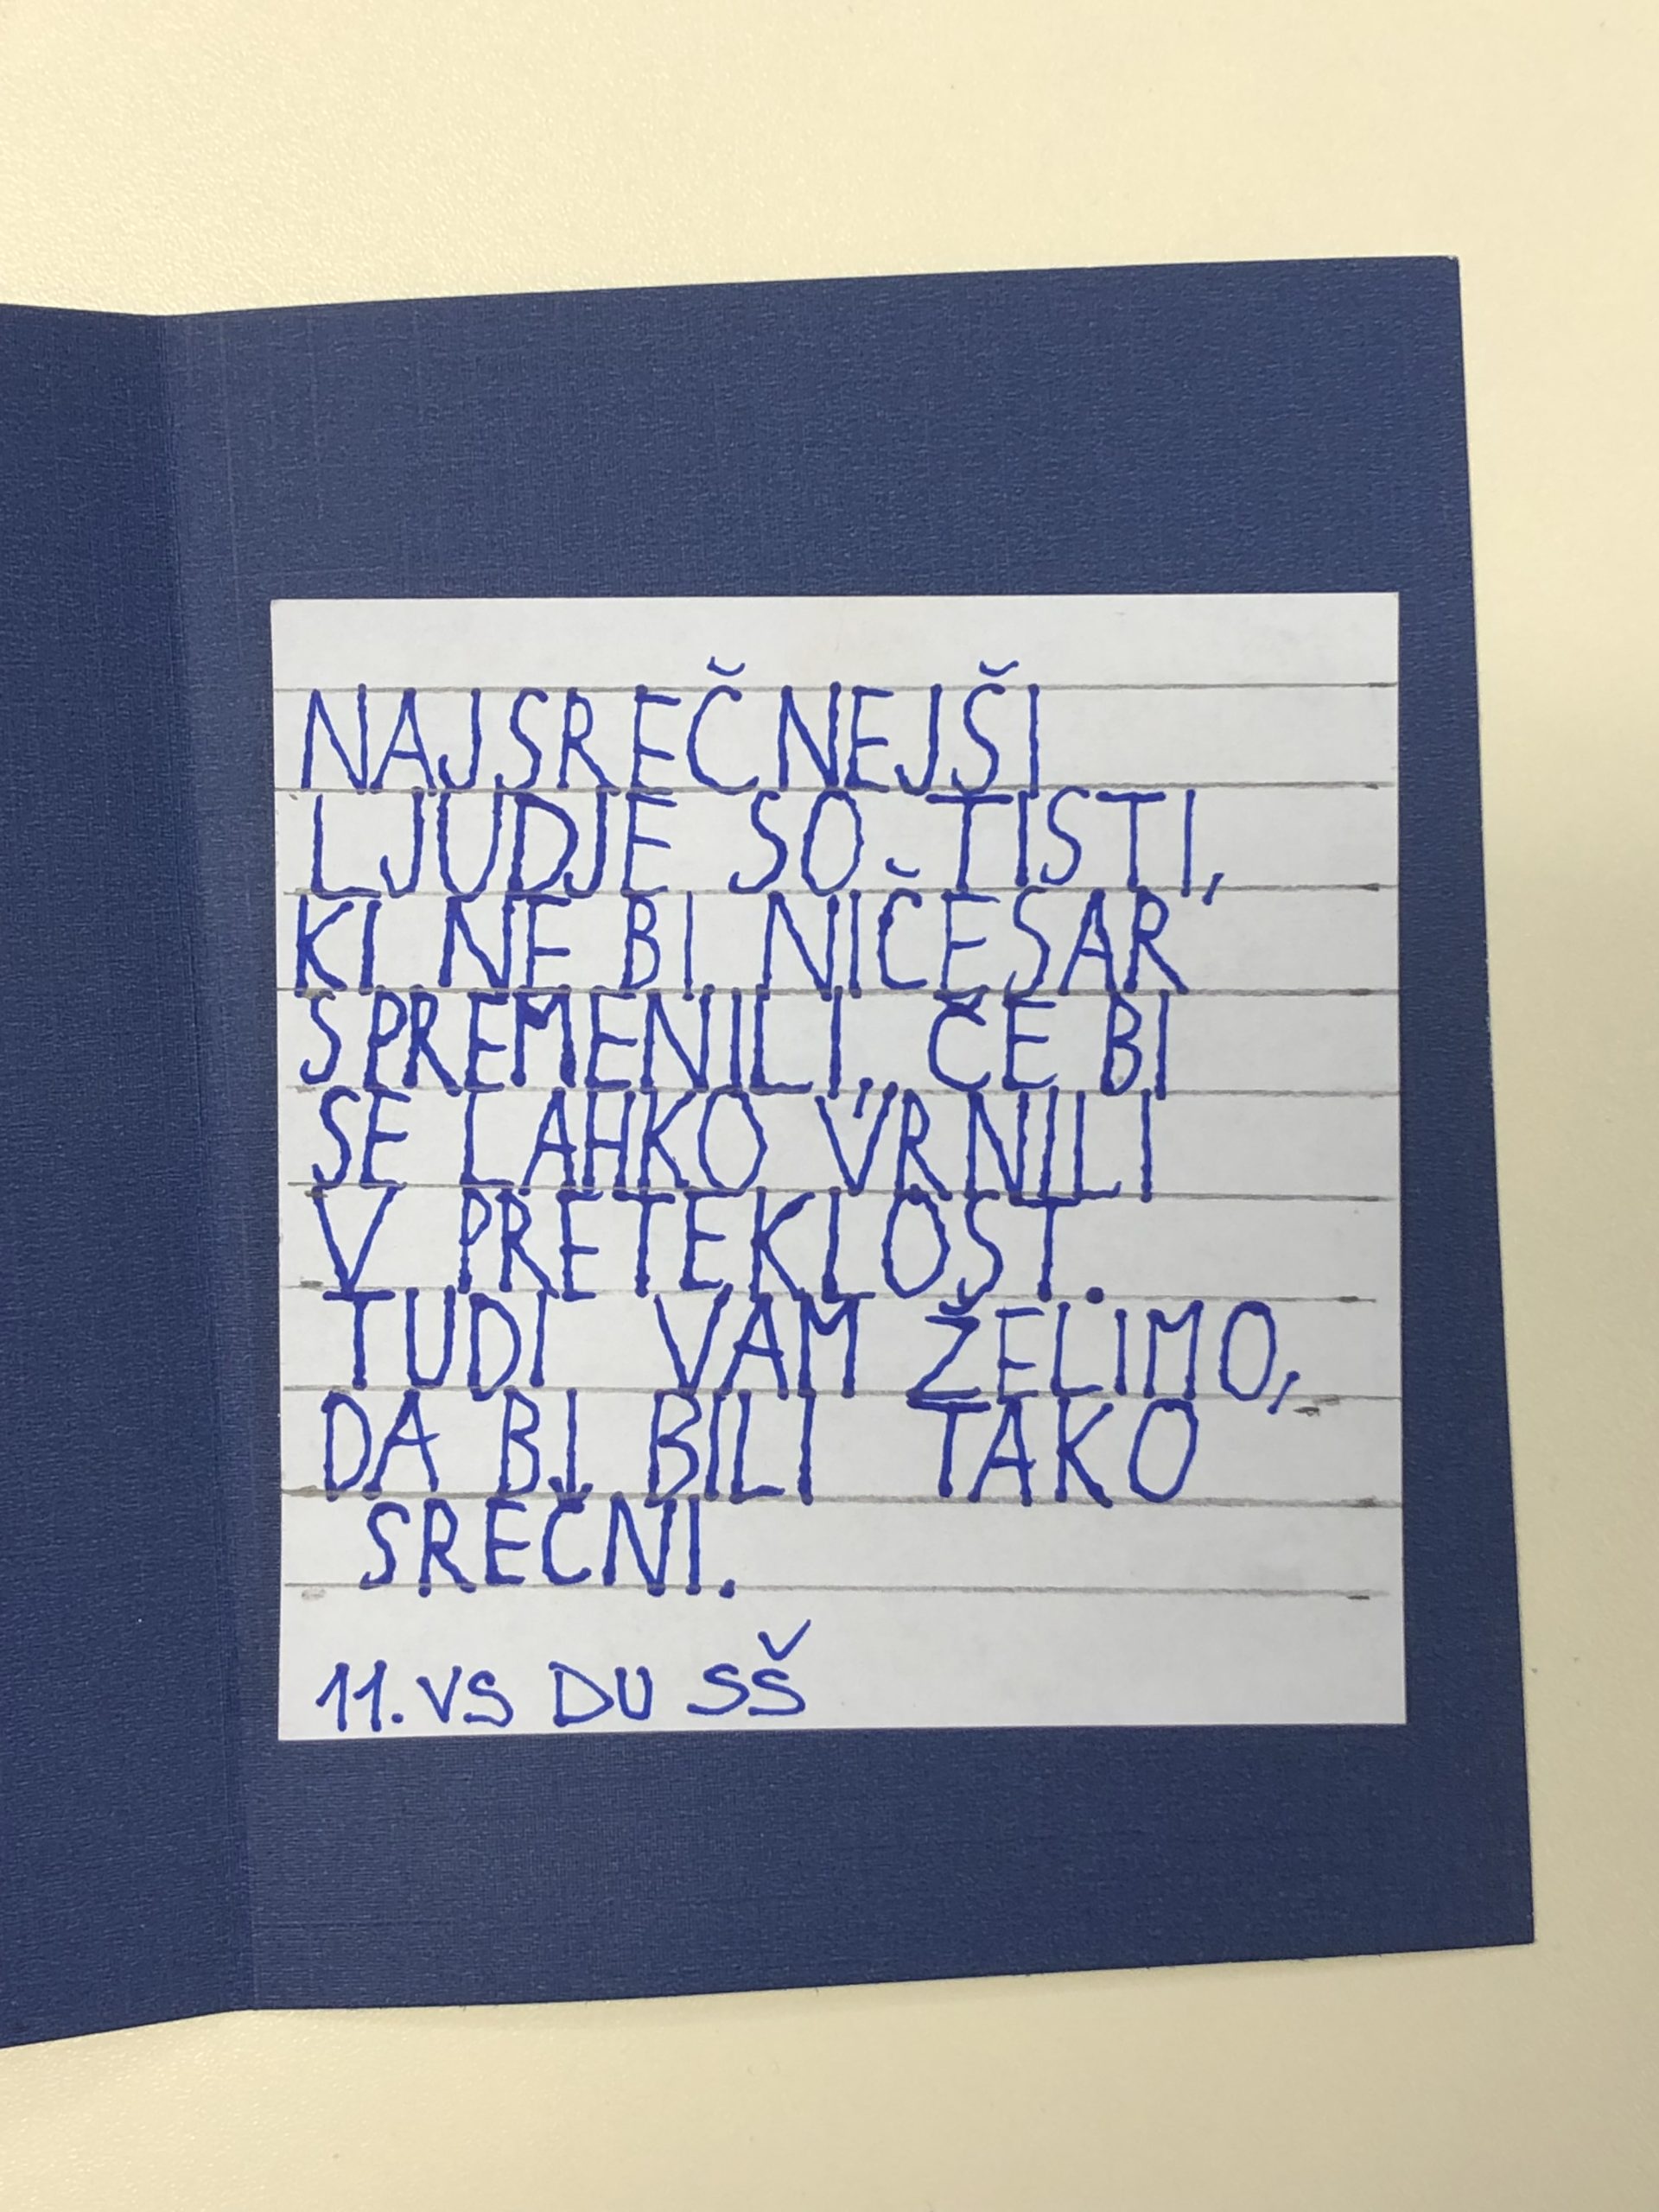 NAJSREČNEJŠI
LJUDJE SO TISTI,
KI NE BI NIČESAR
SPREMENILI, ČE BI
SE LAHKO VRNILI
V PRETEKLOST.
TUDI VAM ŽELIMO,
DA BI BILI TAKO
SREČNI.
11. VS DU SŠ